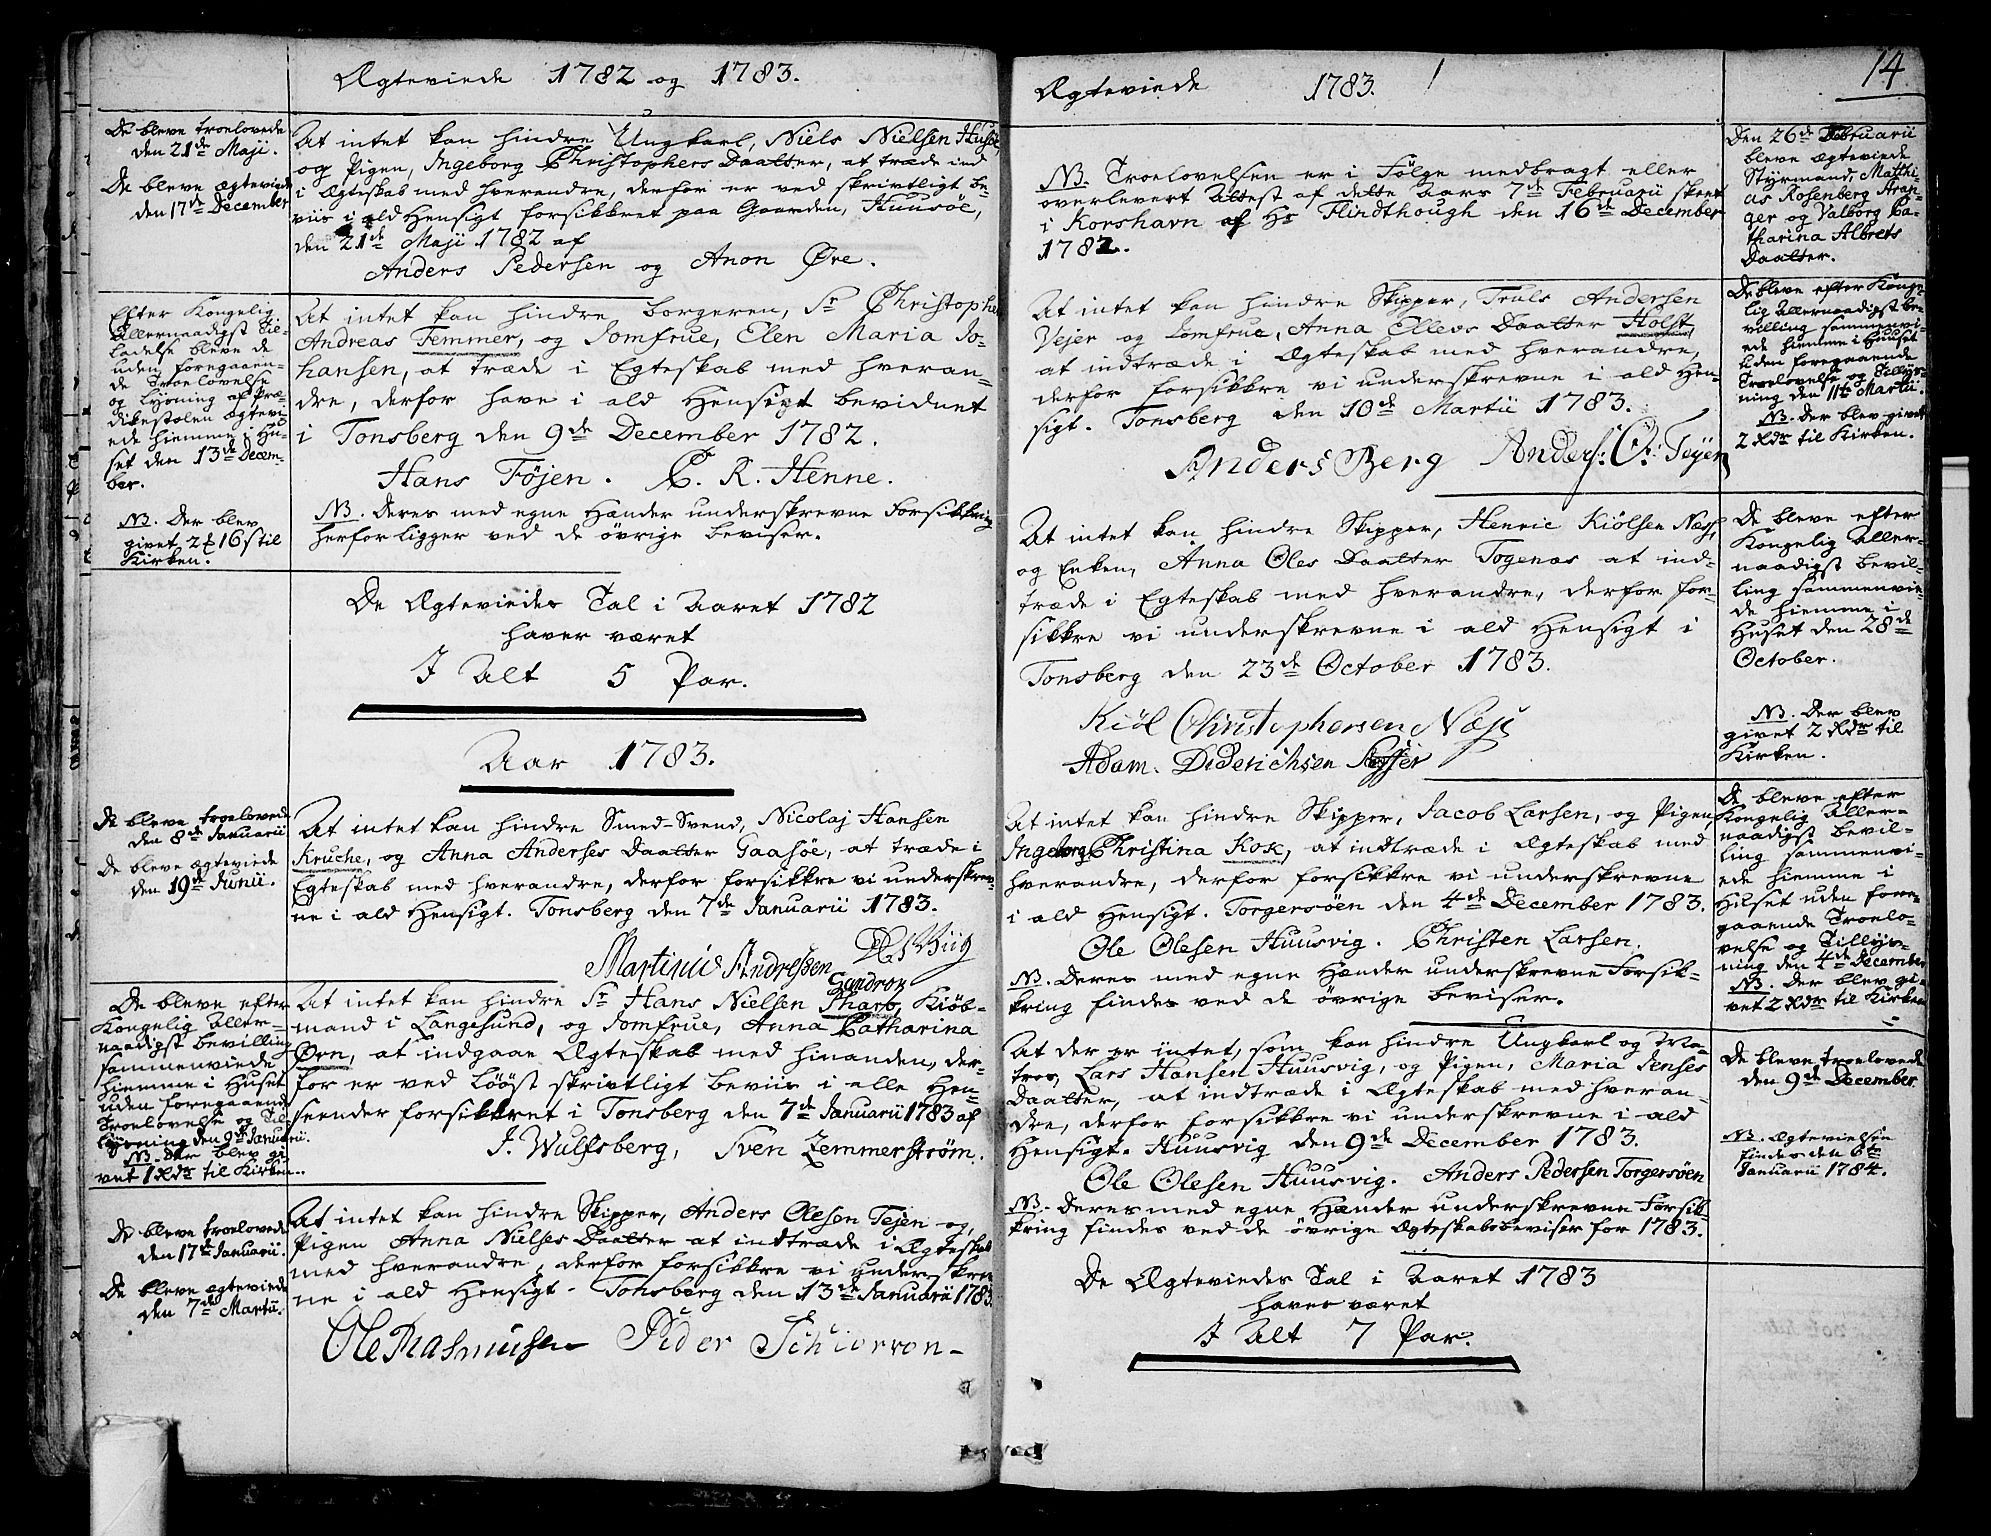 Ægteviede 1782 og 1783.
De bleve troelovede
den 21de Maji.
De bleve ægteviede
den 17de December
At intet kan hindre Ungkarl, Niels Nielsen Husøe,
og Pigen, Ingeborg Christophers Daatter, at træde ind
i Ægteskab med hverandre, derfor er ved skrivtligt be-
viis i ald Hensigt forsikkret paa Gaarden, Huusöe,
den 21de Maji 1782 af
Anders Pedersen og Anon Øre.
Efter Kongelig
Allernaadigst Til-
ladelse bleve de
uden foregaaen-
de Troelovelse
og Lysning af Præ-
dikestolen ægtevi-
ede hiemme i Hu-
set den 13de Decem-
ber.
NB. Der blev
givet 2 16 s til
Kirken.
At intet kan hindre Borgeren, Sr Christopher
Andreas Femmer, og Jomfrue, Elen Maria Jo-
hansen, at træde i Egteskab med hveran-
dre, derfor have i ald Hensigt bevidnet
i Tonsberg den 9de December 1782.
Hans Föjen. C. R. Henne.
NB. Deres med egne Hænder underskrevne Forsikkring
herfor ligger ved de övrige beviser.
De Ægteviedes Tal i Aaret 1782
haver været
I Alt 5 Par.
Aar 1783.
De bleve troelovede
den 8de Januarii
De bleve ægteviede
den 19de Junii.
At intet kan hindre Smed-Svend, Nicolaj Hansen
Kruche, og Anna Anderses Daatter Gaasöe, at træde i
Egteskab med hverandre, derfor forsikkre vi underskrev-
ne i ald Hensigt. Tonsberg den 7de Januarii 1783.
Martinus Andressen
Gundron
De bleve efter
Kongelig Aller-
naadigst bevilling
sammenviede
hiemme i Huset
uden foregaaende
Troelovelse og Til-
lysning den 9de Januarii.
NB. Der blev gi-
vet 1 Rdr til Kirken.
At intet kan hindre Sr Hans Nielsen Tharb, Kiöb-
mand i Langesund, og Jomfrue, Anna Catharina
Örn, at indgaae Ægteskab med hinanden, der-
for er ved lööst skrivtligt beviis i alle Hen-
seender forsikkret i Tonsberg den 7de Januarii 1783 af
J. Wulfsberg, Sven Zemmerström.
De bleve troelovede
den 17de Januarii.
De bleve ægteviede
den 7de Martii.
At intet kan hindre Skipper, Anders Olesen Tejen og,
Pigen Anna Nielses Daatter at indtræde i Ægteskab
med hverandre, derfor forsikkre vi underskrev-
ne i ald Hensigt. Tonsberg den 13de Januarii 1783.
Ole Rasmussen Peder Schiorron
Ægteviede 1783.
14
NB. Troelovelsen er i Fölge medbragt eller
overlevert Attest af dette Aars 7de Februarii skeet
i Korshavn af Hr Flindthough den 16de December
1782.
Den 26de Februarii
bleve ægteviede
Styrmand, Matthi-
as Rosenberg Aran-
ger og Valborg Ca-
tharina Albrets
Daatter.
At intet kan hindre Skipper, Truls Andersen
Vejer og Jomfrue, Anna Ellevs Daatter Holst,
at indtræde i Ægteskab med hverandre,
derfor forsikkre vi underskrevne i ald Hen-
sigt. Tonsberg den 10de Martii 1783.
Anders Berg Anders: O: Tøyen
De bleve efter Konge-
lig Allernaadigst be-
villing sammenvi-
ede hiemme i Huuset
uden foregaaende
Troelovelse og Tillys-
ning den 11te Martii.
NB. Der blev givet
2 Rdr til Kirken.
At intet kan hindre Skipper, Henric Kiölsen Næss,
og Enken, Anna Oles Daatter Togenæs at ind-
træde i Egteskab med hverandre, derfor for-
sikkre vi underskrevne i ald Hensigt i
Tonsberg den 23de October 1783.
Kiöl Christophersen Næss
Adam Diderichsen
De bleve efter
Kongelig Aller-
naadigst bevil-
ling sammenvie-
de hiemme i
Huset den 28de
October.
NB. Der blev
givet 2 Rdr til
Kirken.
At intet kan hindre Skipper, Jacob Larsen, og Pigen
Ingeborg Christina Kox, at indtræde i Ægteskab med
hverandre, derfor forsikkre vi underskrevne
i ald Hensigt. Torgersöen den 4de December 1783.
Ole Olesen Huusvig. Christen Larsen.
NB. Deres med egne Hænder underskrevne Forsik-
kring findes ved de övrige beviser.
De bleve efter
Kongelig Aller-
naadigst bevil-
ling sammenvi-
ede hiemme i
Huset uden fore-
gaaende Troelo-
velse og Tillys-
ning den 4de December
NB. Der blev gi-
vet 2 Rdr til Kirken
At der er intet, som kan hindre Ungkarl og Ma-
tros, Lars Hansen Huusvig, og Pigen, Maria Jenses
Daatter, at indtræde i Ægteskab med hveran-
dre, derfor forsikkre vi underskrevne i ald
Hensigt. Huusvig den 9de December 1783.
Ole Olesen Huusvig. Anders Pedersen Torgersöen
NB. Deres med egne Hænder underskrevne Forsik-
kring findes ved de övrige Ægteskabsbeviser for 1783.
De bleve troelovede
den 9de December.
NB. Ægtevielsen
findes den 6te
Januarii 1784.
De Ægteviedes Tal i Aaret 1783
haver været
I Alt 7 Par.